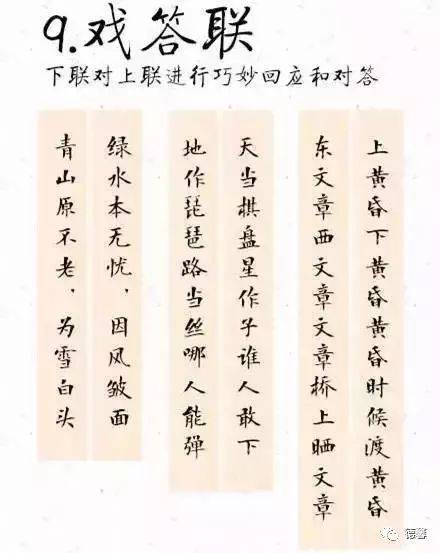 9.戏答联
下联对上联进行巧妙回应和对答
上黄昏下黄昏黄昏时候渡黄昏
东文章西文章文章桥上晒文章
天当棋盘星作子谁人敢下
地作琵琶路当丝哪人能弹
绿水本无忧，因风皱面
青山原不老，为雪白头
德馨